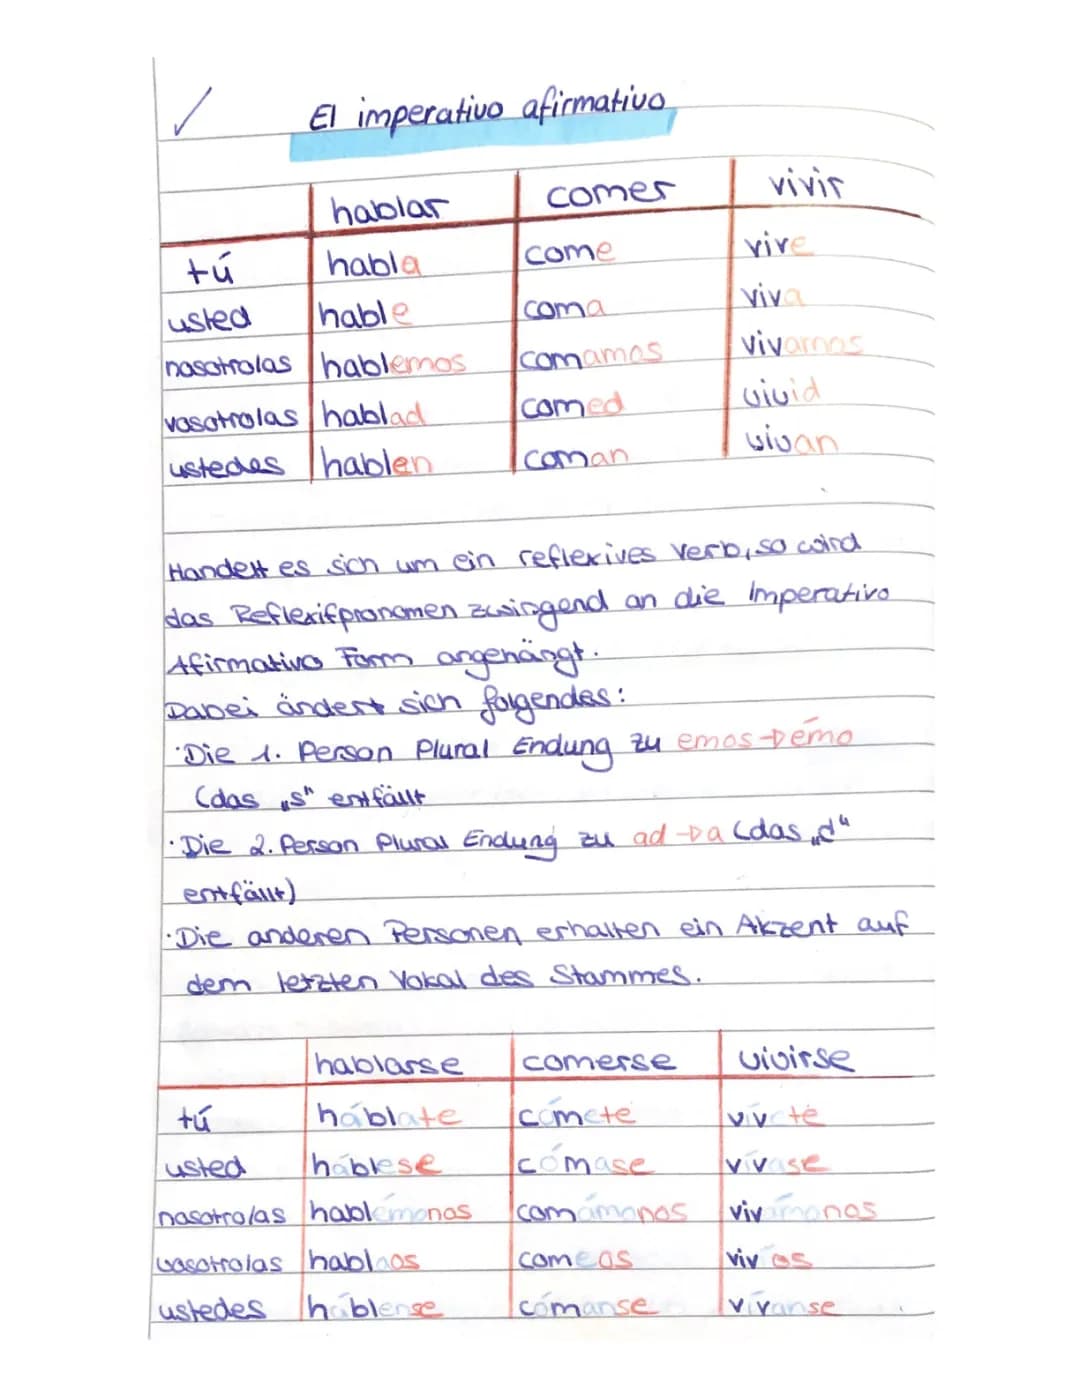 El imperativo afirmativo
hablar comer vivir
tú habla come vive
usted hable coma viva
nosotro/as hablemos comamos vivamos
vosotro/as hablad comed vivid
ustedes hablen coman vivan
Handelt es sich um ein reflexives Verb, so wird
das Reflexifpronomen zwingend an die Imperativo
Afirmativo Form angehängt.
Dabei ändert sich folgendes:
·Die 1. Person Plural Endung zu emos→émo
(das „s“ entfällt
·Die 2. Person Plural Endung zu ad→a (das „d“
entfällt)
·Die anderen Personen erhalten ein Akzent auf
dem letzten Vokal des Stammes.
hablarse comerse vivirse
tú háblate cómete vívete
usted háblese cómase vívase
nosotro/as hablémonos comámonos vivámonos
vosotro/as hablaos comeos vivíos
ustedes háblense cómanse vívanse